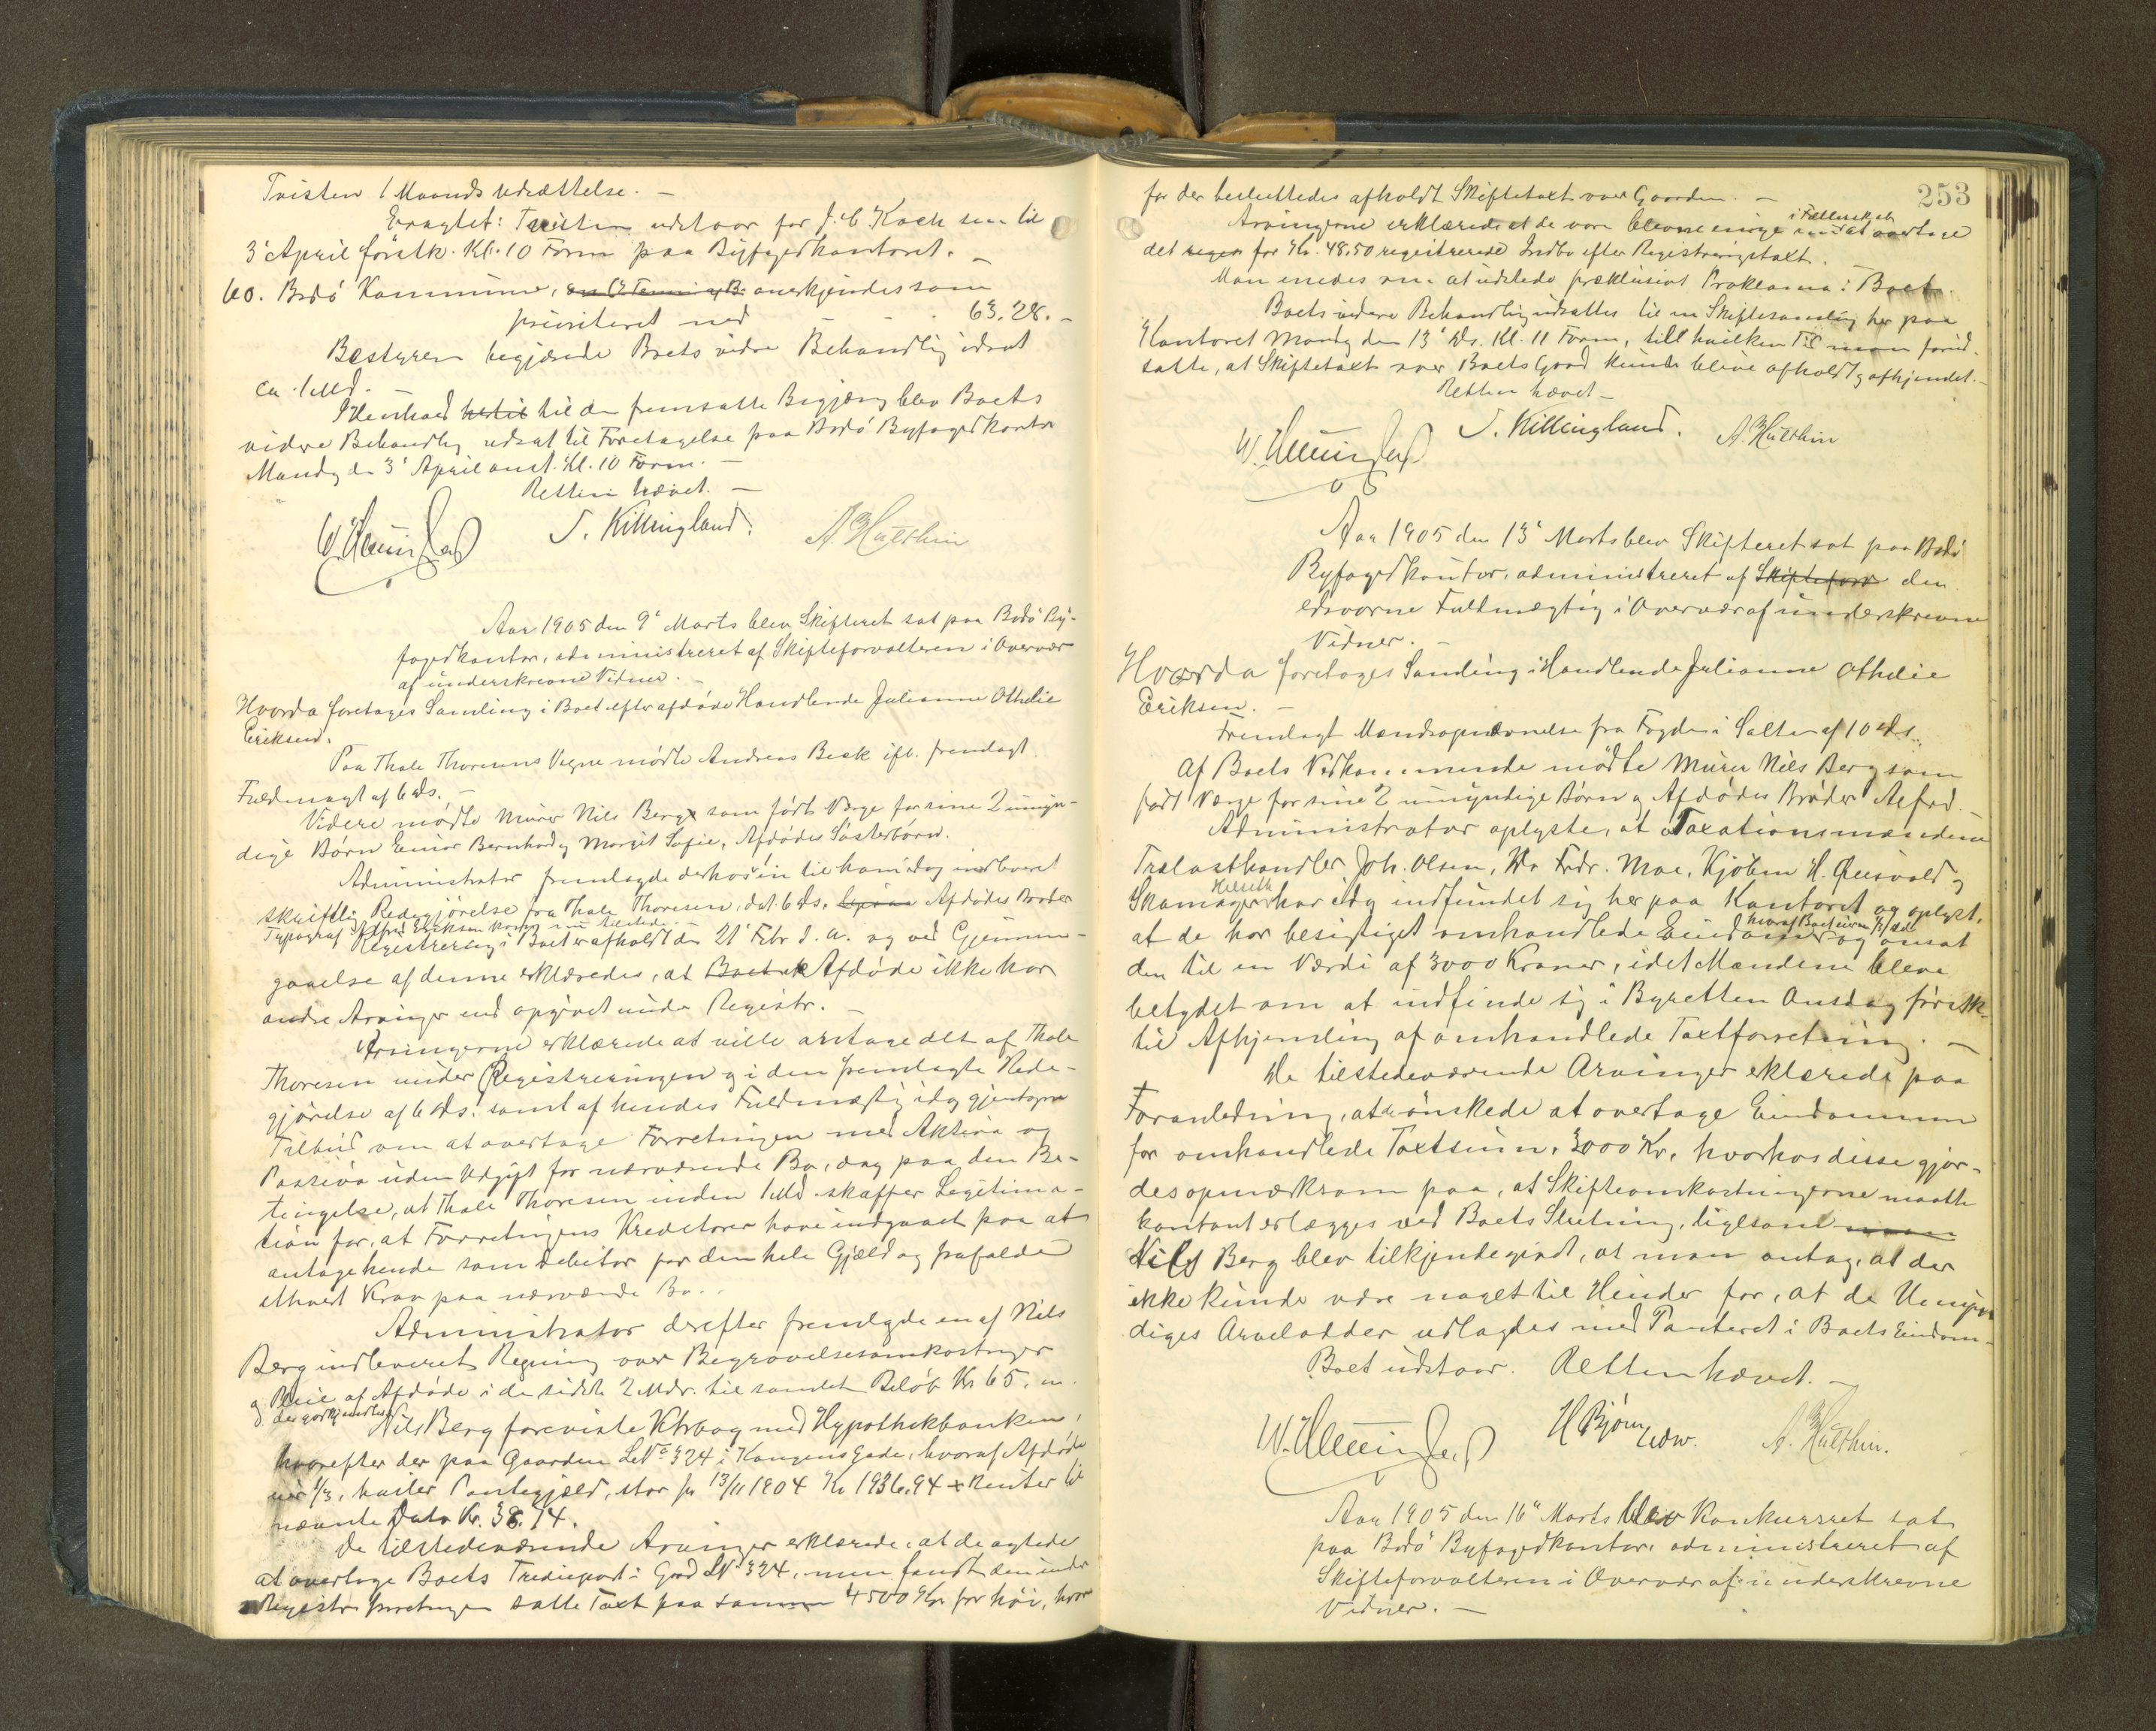 Tvisten 1 Maaneds Udsættelse. —
Eragtet: Tvisten udstaar for J. C. Koch sen. til
3' April førstk. Kl. 10 Form. paa Byfogedkontoret. —
60. Bodö Kommune, anerkjendes som
prioriteret med 63.28. —
Bestyreren begjærede Boets videre Behandling udsat
ca. 1 Md. —
I Henhold hertil til den fremsatte Begjæring blev Boets
videre Behandling udsat til Foretagelse paa Bodö Byfogedkontor
Mandag den 3' April anst. Kl. 10 Form. —
Retten hævet. —
S. Killingland. A. Hulthin
Aar 1905 den 9' Marts blev Skifteret sat paa Bodö By-
fogedkontor, administreret af Skifteforvalteren i Overvær
af underskrevne Vidner. —
Hvorda foretoges Samling i Boet efter afdøde Handlende Julianne Othelie
Eriksen.
Paa Thale Thoresens Vegne mødte Andreas Beck ifl. fremlagt
Fuldmagt af 6 ds. —
Videre mødte Murer Nils Berg som født Værge for sine 2 umyn-
dige Børn Einar Bernhard og Margit Sofie, Afdødes Søsterbørn.
Administrator fremlagde derhos in til ham idag indleveret
skriftlig Redegjørelse fra Thale Thoresen, dat. 6 ds. Afdødes Broder
Typograf Alfred Eriksen var nu tilstede.
Registrering i Boet er afholdt den 21' Febr d. A. og ved Gjennem-
gaaelse af denne erklæredes, at Boet Afdøde ikke har
andre Arvinger end opgivet under Registr.
Arvingerne erklærede at ville antage det af Thale
Thoresen under Registreringen og i den fremlagte Rede-
gjørelse af 6 ds. samt af hendes Fuldmægtig idag gjentagne
Tilbud om at overtage Forretningen med Aktiva og
Passiva uden Udgift for nærværende Bo, dog paa den Be-
tingelse, at Thale Thoresen inden 1 Md. skaffer Legitima-
tion for, at Forretningens Kreditorer have indgaaet paa at
antage hende som Debitor for den hele Gjæld og frafalde
ethvert Krav paa nærværende Bo.
Administrator derefter fremlagde en af Nils
Berg indleveret Regning over Begravelsesomkostninger
og Pleie af Afdøde i de sidste 2 Mdr. til samlet Beløb Kr 65, —
der godkjendtes.
Nils Berg foreviste Kvbog med Hypothekbanken,
hvorefter der paa Gaarden LNº 324 i Kongens Gade, hvoraf Afdøde
eier 1/3, hviler Pantegjæld, stor pr 13/11 1904 Kr 1936.94 + Renter til
nævnte Dato Kr. 38.74.
De tilstedeværende Arvinger erklærede, at de agtede
at overtage Boets Trediepart i Gaard LN 324, men fandt den under
Registr. forretningen satte Taxt paa 4500 Kr. for høi, hvor
253
for der besluttedes afholdt Skiftetaxt over Gaarden. —
i Fælleskab
Arvingerne erklærede at de vare blevne enige om at overtage
det for Kr. 48.50 registrerede Indbo efter Registreringstaxt.
Man enedes om at udstede præklusivt Proklama i Boet.
Boets videre Behandling udsattes til en Skiftesamling her paa
Kontoret Mandag den 13' ds. Kl. 11 Form., till hvilken Tid man forud-
satte, at Skiftetaxt over Boets Gaard kunde blive afholdt og afhjemlet. —
Retten hævet —
S. Killingland. A. Hulthin
Aar 1905 den 13' Marts blev Skifteret sat paa Bodö
Byfogedkontor, administreret af Skifteforv den
edsvorne Fuldmægtig i Overvær af underskrevne
Vidner. —
Hvorda foretoges Samling i Handlende Julianne Othelie
Eriksen. —
Fremlagt Mændsopnævnelse fra Fogden i Salten af 10 ds.
Af Boets Vedkommende mødte Murer Nils Berg som
født Værge for sine 2 umyndige Børn og Afdødes Broder Alfred.
Administrator oplyste, at Taxationsmændene
Trælasthandler Joh. Olsen, Hr. Fredr. Moe, Kjøbm H. og
Skomager Helseth har idag indfundet sig her paa Kontoret og oplyst,
at de har besigtiget omhandlede Eiendom, hvoraf Boet eier 1/3 del og ansat
den til en Værdi af 3000 Kroner, idet Mændene bleve
betydet om at indfinde sig i Byretten Onsdag førstk.
til Afhjemling af omhandlede Taxtforretning. —
De tilstedeværende Arvinger erklærede paa
Foranledning, at de ønskede at overtage Eiendommen
for omhandlede Taxtsum, 3000 Kr., hvorhos disse gjor-
des opmærksom paa, at Skifteomkostningerne maatte
kontant erlægges ved Boets Slutning, ligesom man
Nils Berg blev tilkjendegivet, at man antog, at der
ikke kunde være noget til Hinder for, at de Umyn-
diges Arvelodder udlagdes med Panteret i Boets Eiendom —
Boet udstaar. Retten hævet. —
H Bjørn A. Hulthin.
Aar 1905 den 16' Marts blev Konkursret sat
paa Bodö Byfogedkontor, administreret af
Skifteforvalteren i Overvær af underskrevne
Vidner. —